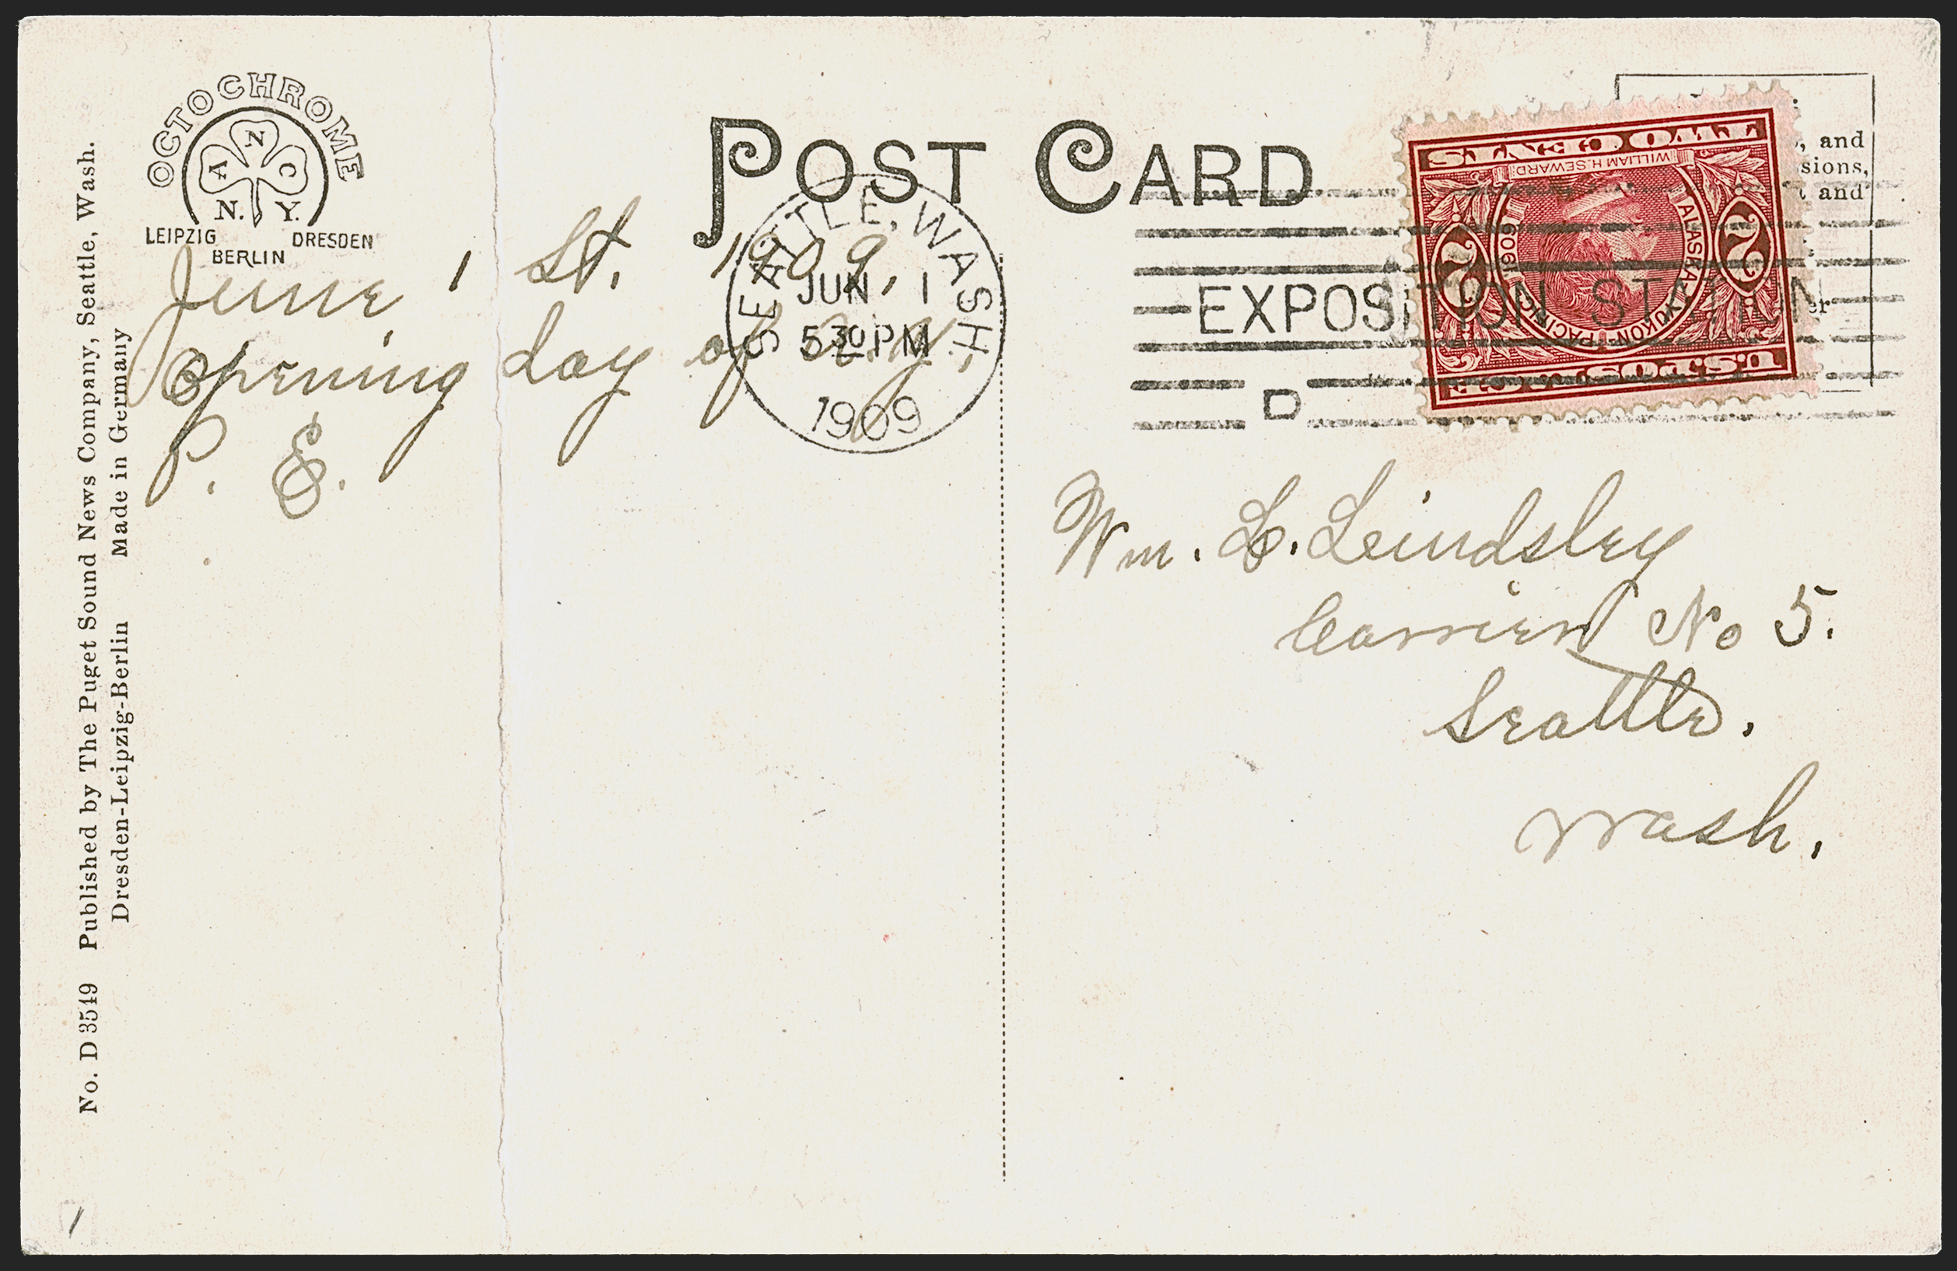 OCTOCHROME
A N C
N. Y.
LEIPZIG
BERLIN
DRESDEN
POST CARD
June 1 St. 1909.
Opening day of A. Y.
P. E.
SEATTLE, WASH.
JUN 1
5 30 PM
1909
EXPOSITION STATION
D
U.S. POSTAGE
ALASKA-YUKON-PACIFIC
1909
WILLIAM H. SEWARD
2 2
TWO CENTS
, and
sions,
t and
er
Wm. L. Leindsley
Carrier No 5.
Seattle.
Wash.
No. D 3549 Published by The Puget Sound News Company, Seattle, Wash.
Dresden-Leipzig-Berlin Made in Germany